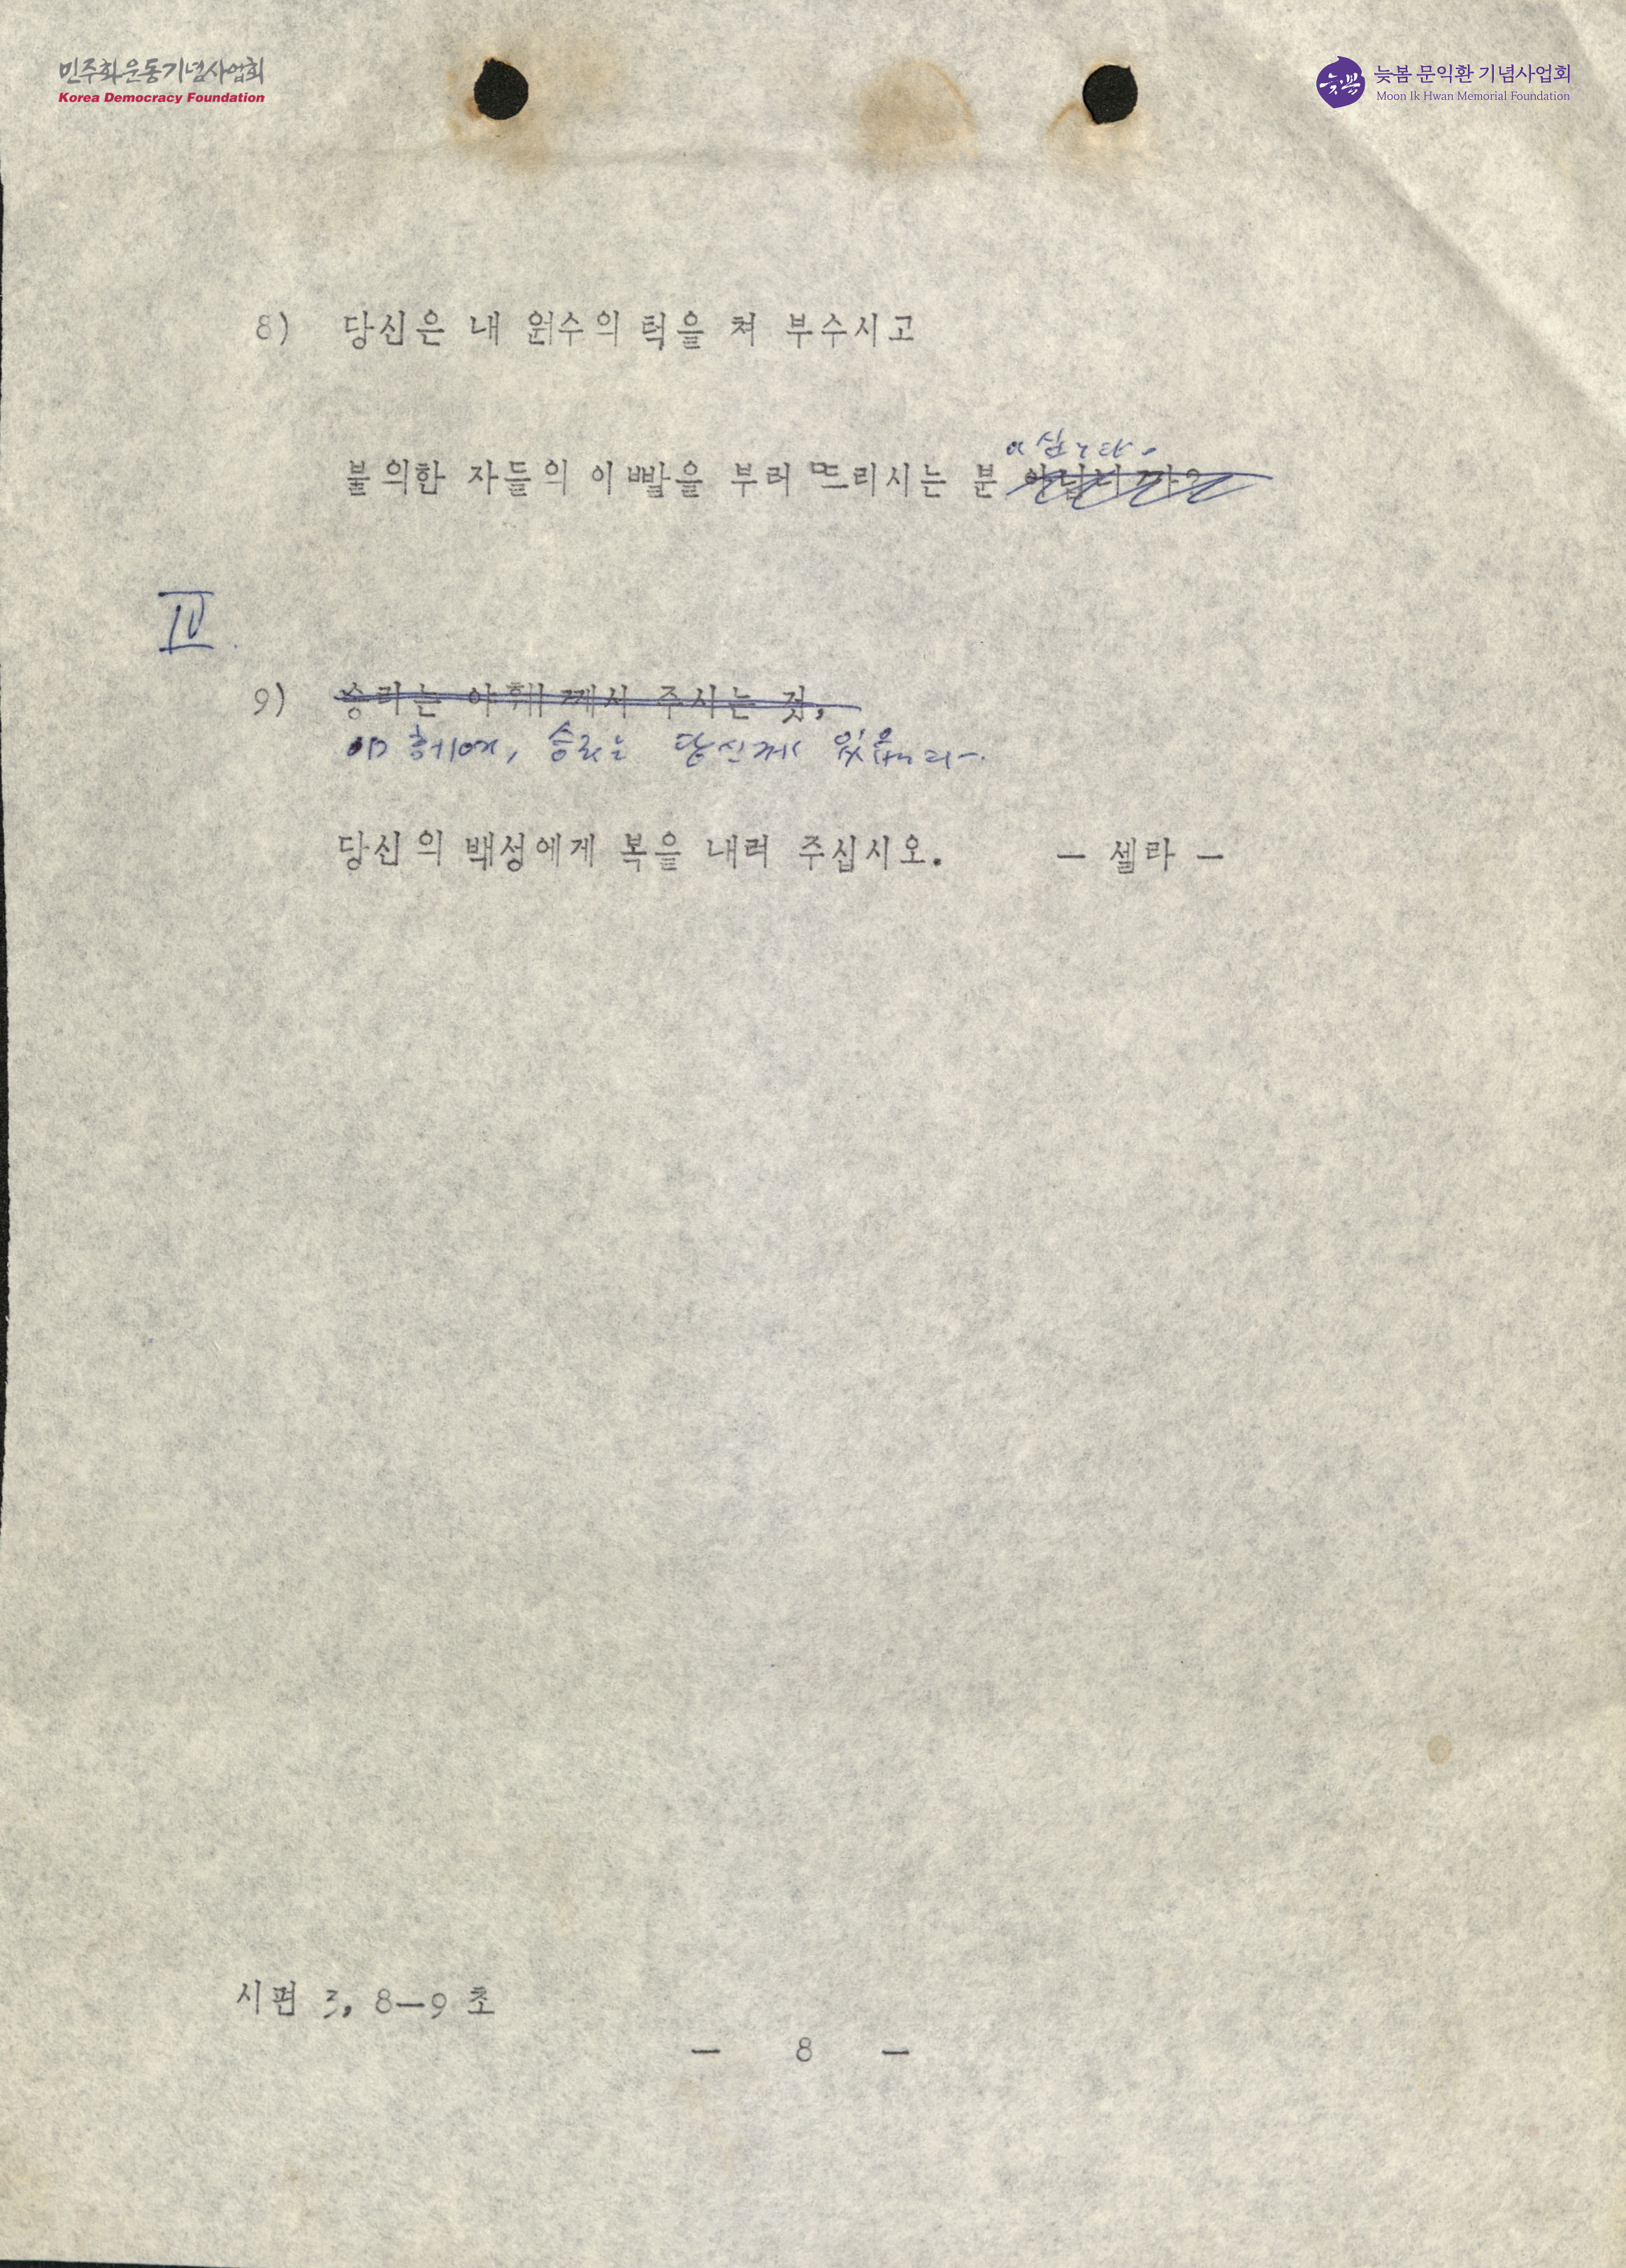 민주화운동기념사업회
Korea Democracy Foundation
늦봄
늦봄 문익환 기념사업회
Moon Ik Hwan Memorial Foundation
8) 당신은 내 원수의 턱을 쳐 부수시고
이십니다.
불의한 자들의 이빨을 부러 뜨리시는 분 아닙니까?
IV.
9) 승리는 야훼께서 주시는 것,
야훼여, 승리는 당신께 있읍니다.
당신의 백성에게 복을 내려 주십시오. — 셀라 —
시편 3, 8—9 초
— 8 —